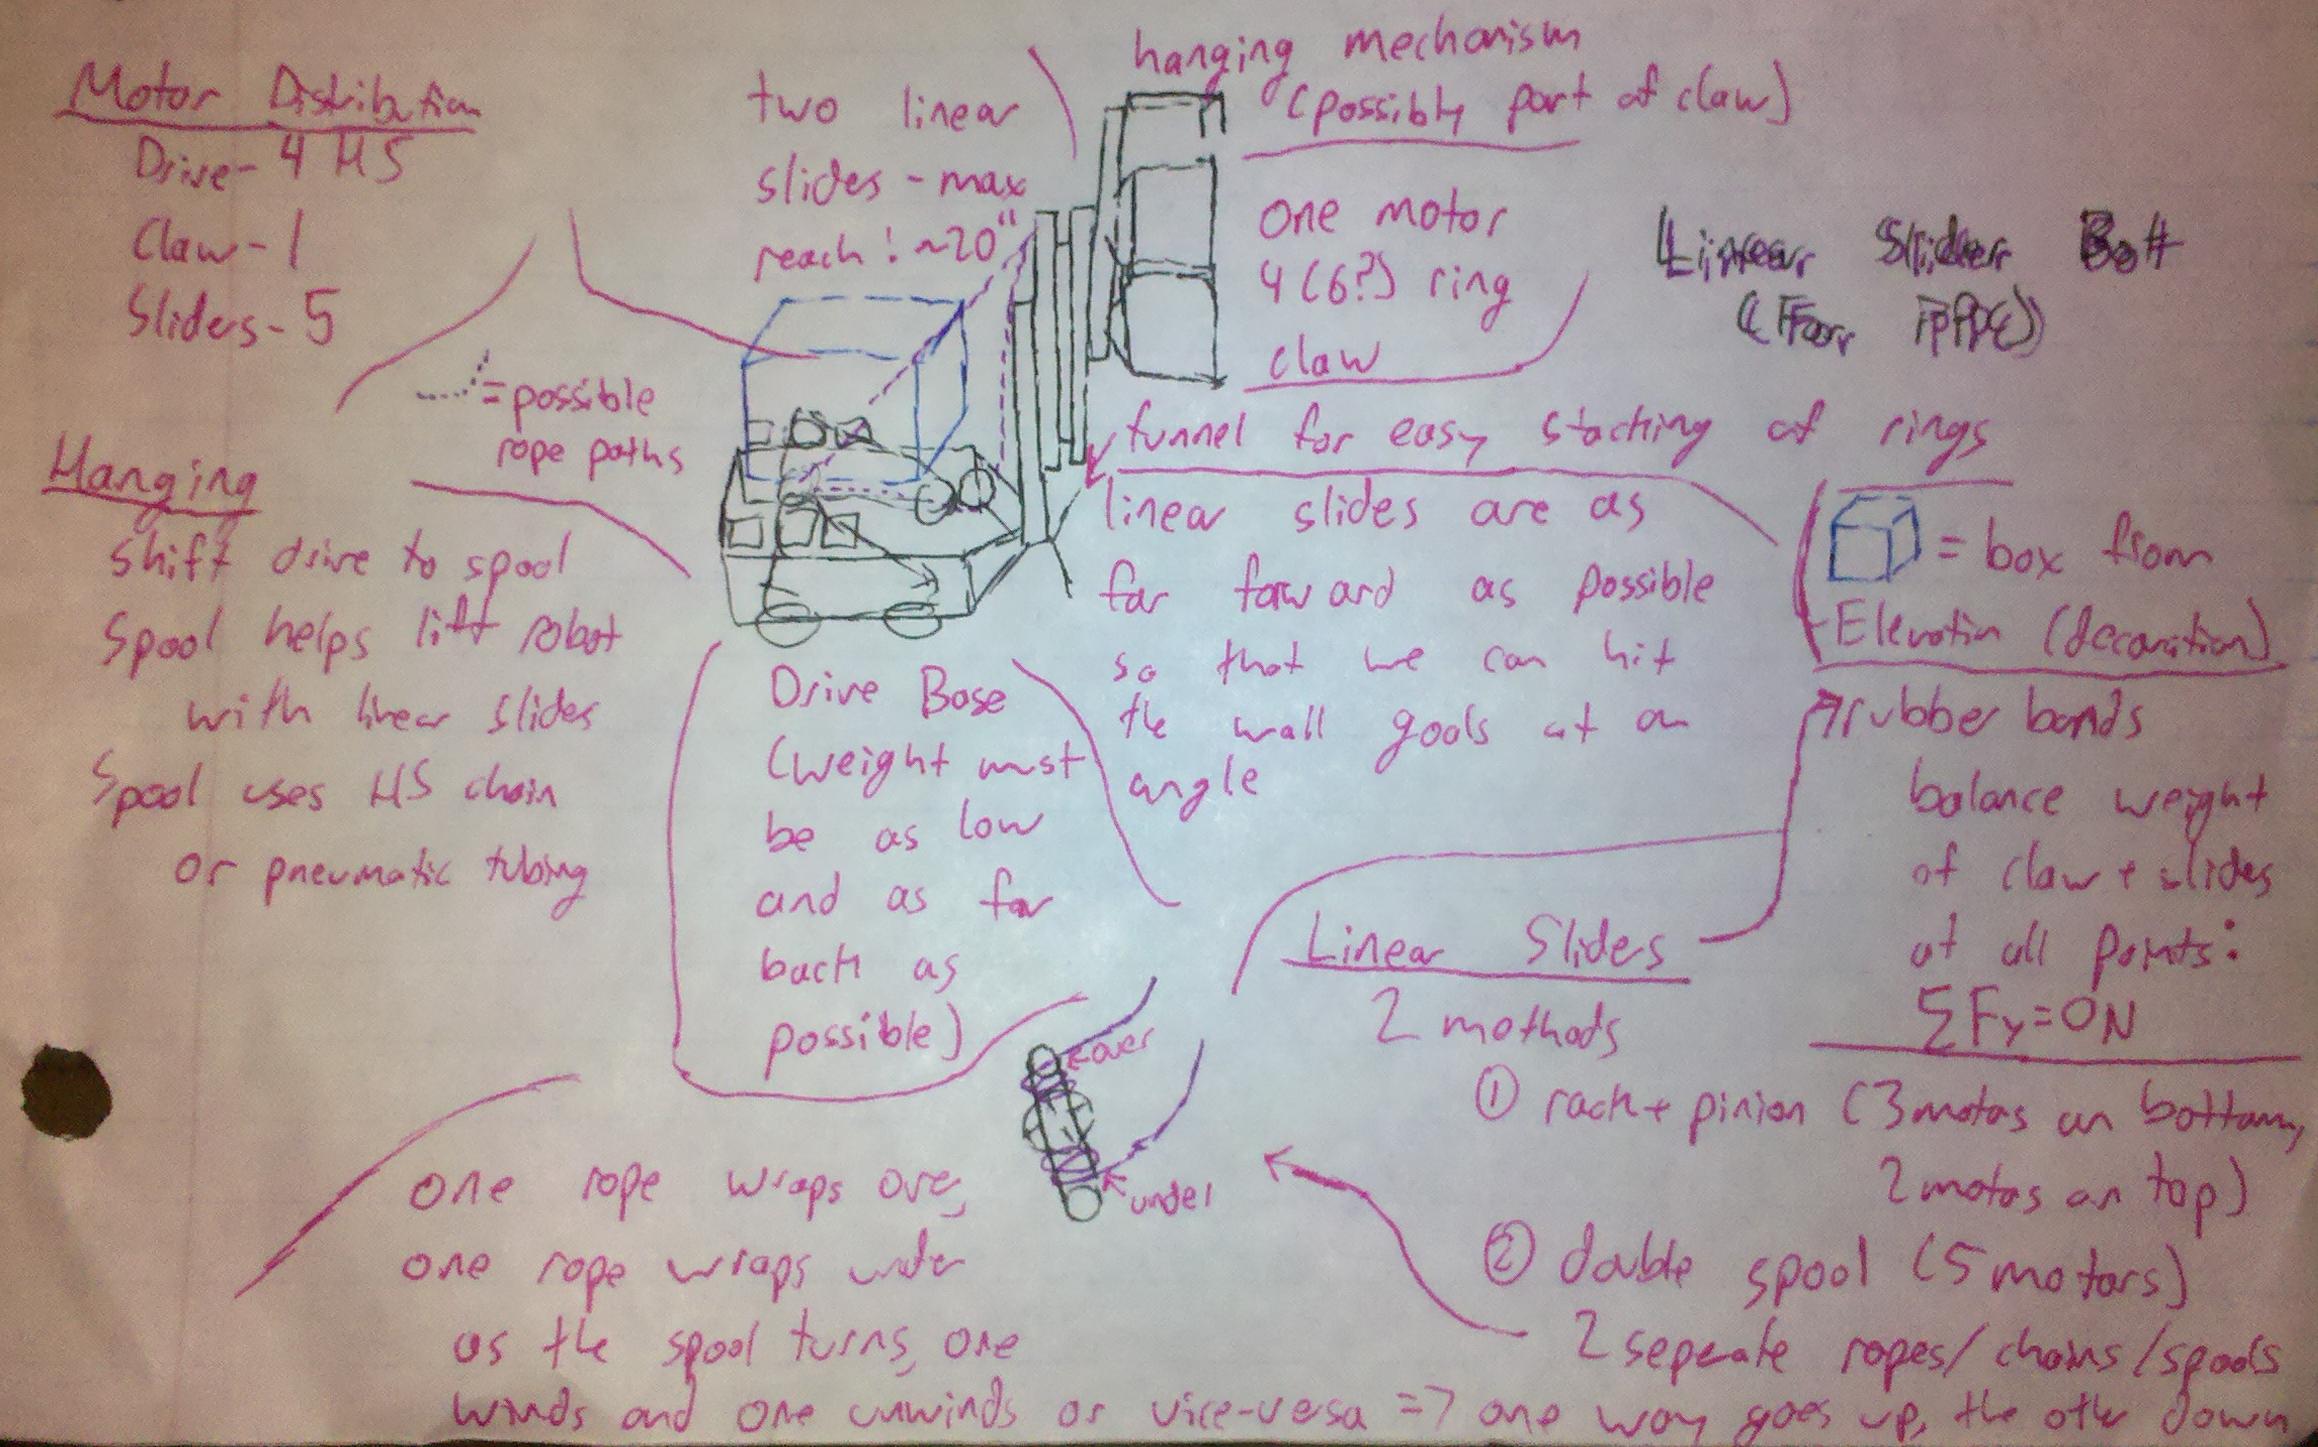 Motor Distribution
Drive - 4 HS
Claw - 1
Sliders - 5
= possible
rope paths
Hanging
Shift drive to spool
Spool helps lift robot
with linear slides
Spool uses HS chain
or pneumatic tubing
two linear
slides - max
reach: ~20"
hanging mechanism
(possibly part of claw)
one motor
4 (6?) ring
claw
Linear Slider Bot
(For
funnel for easy stacking of rings
linear slides are as
far forward as possible
so that we can hit
the wall goals at an
angle
= box from
Elevation (decoration)
Drive Base
(weight must
be as low
and as far
back as
possible)
rubber bands
balance weight
of claw + slides
at all points:
ΣFy=0N
Linear Sliders
2 mothods
① rack + pinion (3 motors on bottom,
2 motors on top)
② double spool (5 motors)
2 seperate ropes/chains/spools
over
under
one rope wraps over,
one rope wraps under
as the spool turns, one
winds and one unwinds or vice-versa => one way goes up, the other down